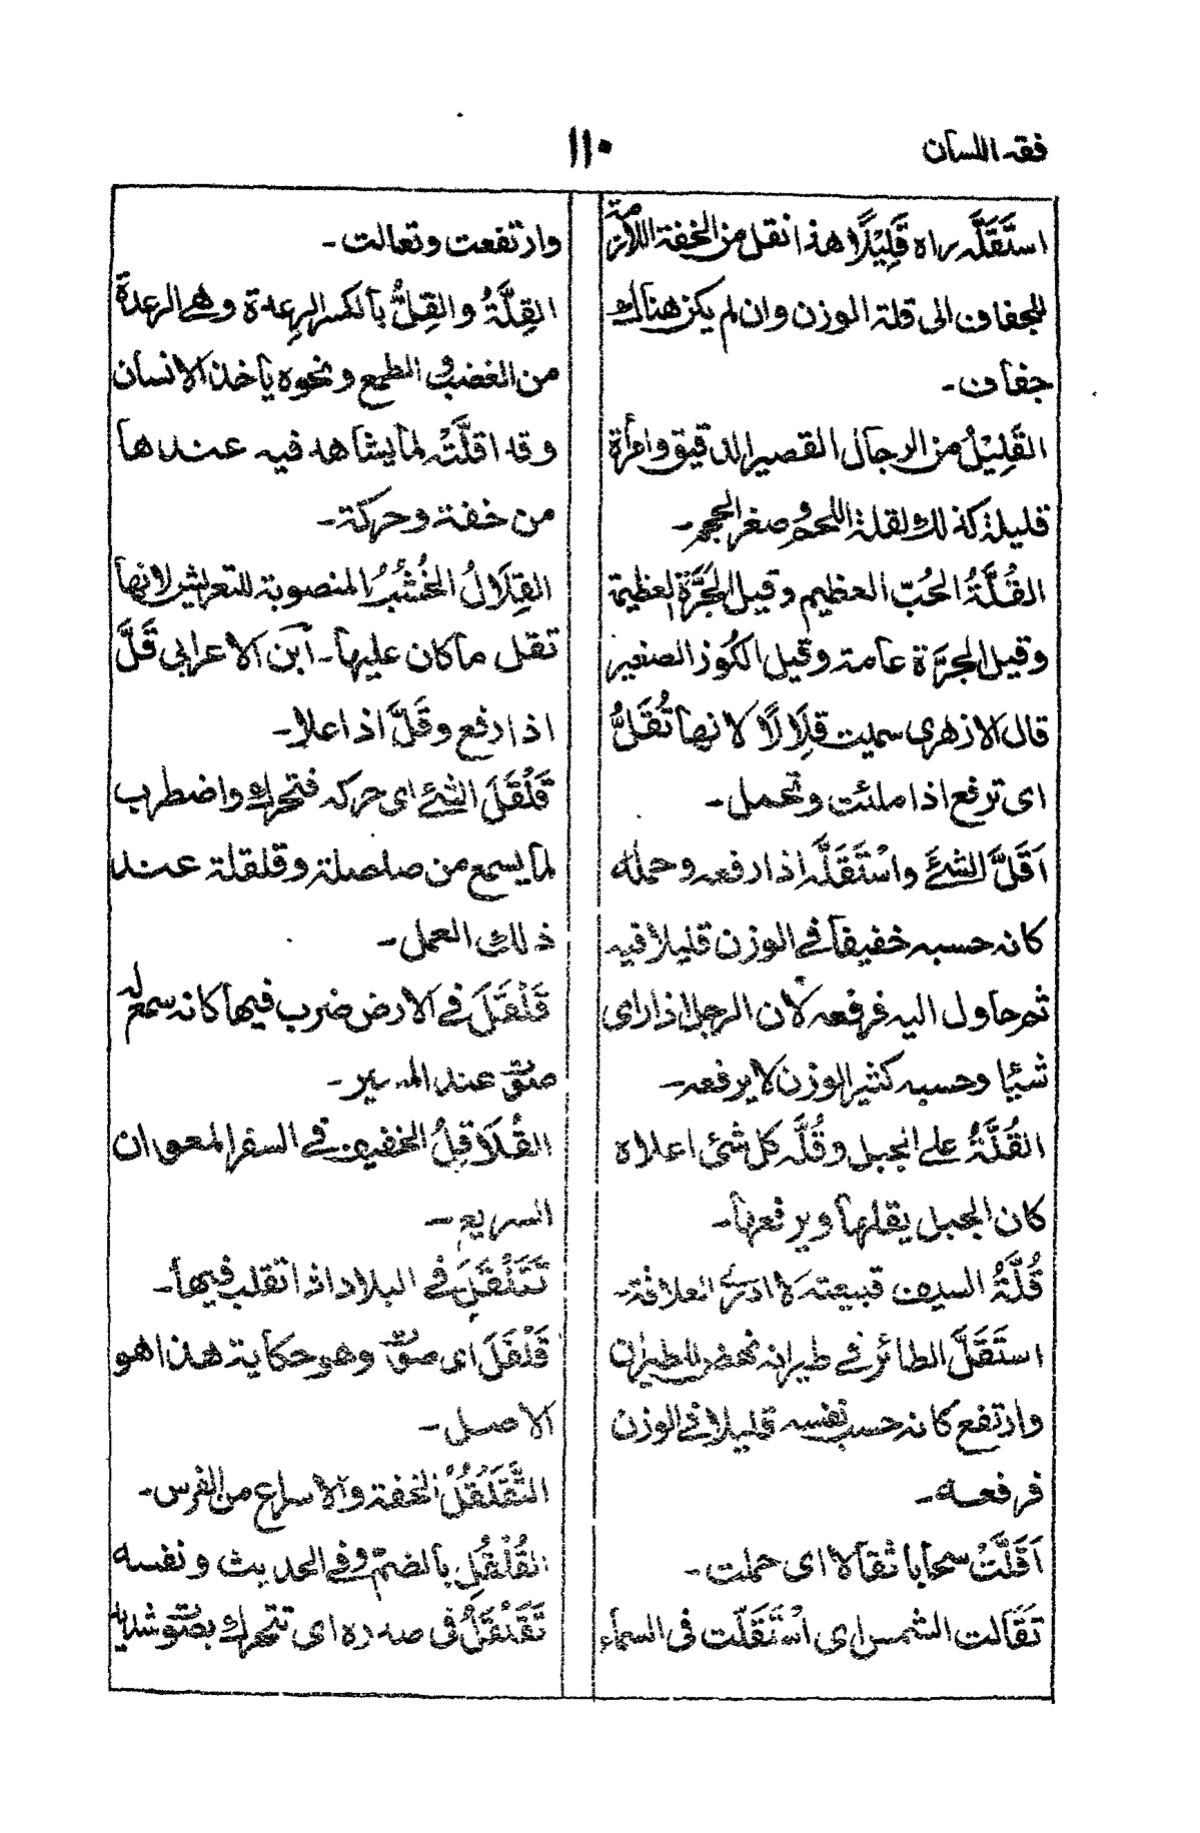 فقه اللسان
١١٠
استَقَلَّه راه قَلِيْلًا هذا نقل من الخفة اللازمة
للجفاف الى قلة الوزن وان لم يكن هناك
جفاف ـ
القَلِيْلُ من الرجال القصير الدقيق وامرأة
قليلة كذلك لقلة اللحم وصغر الحجم ـ
القُلَّةُ الحُبّ العظيم وقيل الجَرَّة العظيمة
وقيل الجَرَّة عامة وقيل الكُوز الصغير
قال الازهرى سميت قِلَالًا لانها تُقَلُّ
اى ترفع اذا ملئت وتحمل ـ
اَقَلَّ الشئَ واسْتَقَلَّه اذا رفعه وحمله
كانه حسبه خفيفا فى الوزن قليلا فيه
ثم حاول اليه فرفعه لان الرجل اذا راى
شيئا وحسبه كثير الوزن لا يرفعه ـ
القُلَّةُ على الجبل وقُلَّه كل شئ اعلاه
كان الجبل يقلها ويرفعها ـ
قُلَّةُ السيف قبيعته العلاقة ـ
استَقَلَّ الطائر فى طيرانه نهض للطيران
وارتفع كانه حسب نفسه قليلا فى الوزن
فرفعه ـ
اَقَلَّتْ سحابا ثقالا اى حملت ـ
تَقَالت الشمس اى اسْتَقَلّت فى السماء
وارتفعت وتعالت ـ
القِلَّةُ والقِلُّ بالكسر الرِعدة وهى الرعدة
من الغضب والطمع ونحوه ياخذ الانسان
وقد اقلَّتْه لما يشاهد فيه عندها
من خفة وحركة ـ
القِلَالُ الخُشُبُ المنصوبة للتعريش لانها
تقل ما كان عليها ـ ابن الاعرابى قَلَّ
اذا رفع وقَلَّ اذا علا ـ
قَلْقَلَ الشئ اى حركه فتحرك واضطرب
لما يسمع من صلصلة وقلقلة عند
ذلك العمل ـ
قَلْقَلَ فى الارض ضرب فيها كانه سمع له
صوت عند السير ـ
القُلَاقِلُ الخفيف فى السفر المعوان
السريع ـ
تَقَلْقَلَ فى البلاد اذا تقلب فيها ـ
قَلْقَلَ اى صوت وهو حكاية هذا هو
الاصل ـ
التَّقَلْقُلُ الخفة والاسراع من الفرس ـ
القُلْقُل بالضم وفى الحديث ونفسه
تَقَلْقَلُ فى صدره اى تتحرك بصوت شديد